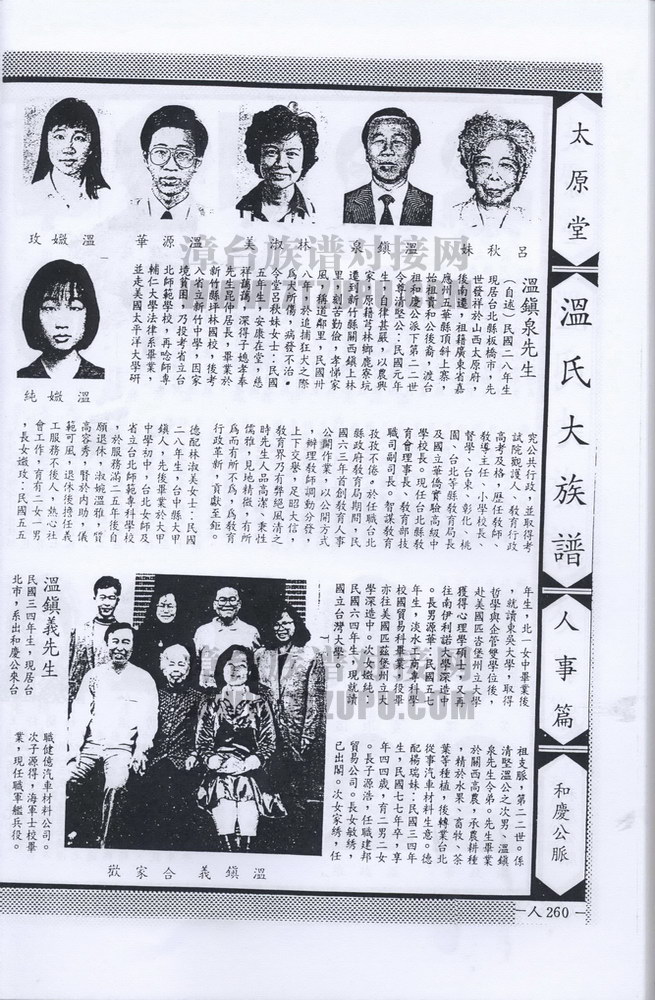 太原堂
溫氏大族譜
人事篇
和慶公脈
呂秋妹
溫鎮泉
林淑美
溫源華
溫媺玫
溫媺純
溫鎮泉先生
（自述）民國二八年生
，現居台北縣板橋市，先
世發祥於山西太原府，
後南遷，祖籍廣東省嘉
應州五華縣頂斜上寨，
始祖貴和公後裔，渡台
祖和慶公派下第二二世
。令尊清堅公：民國元年
生，自律甚嚴，以農興
家，原籍芎林鄉鹿寮坑
，遷到新竹縣關西鎮上林
里，刻苦勤儉，孝悌家
風，稱道鄰里，民國卅
八年，於追捕狂犬之際
，為犬所傷，病發不治。
令堂呂秋妹女士：民國
五年生，安康在堂，慈
祥藹藹，深得子媳孝奉
。先生昆仲居長，畢業於
新竹縣坪林國校，後考
入省立新竹中學，因家
境貧困，乃投考省立台
北師範學校，再唸師專
、輔仁大學法律系畢業，
並走美國太平洋大學研
究公共行政，並取得考
試院觀護人、教育行政
高考及格，歷任教師、
教導主任、小學校長、
督學、台東、彰化、桃
園、台北等縣教育局長
及國立華僑實驗高級中
學校長。現任台北縣教
育會理事長、教育部技
職司副司長。智謀教育
孜孜不倦。於任職台北
縣政府教育局期間，民
國六三年首創教育人事
公開作業，以公開方式
，辦理教師調動分發，
上下交譽，足昭大信，
教育界乃有弊絕風清之
時。先生人品高潔、秉性
儒雅，見地精微，有所
為而有所不為，為教育
行政革新，貢獻至鉅。
德配林淑美女士：民國
二八年生，台中縣大甲
鎮人，先後畢業於大甲
中學初中，台北女師及
省立台北師範專科學校
，於服務滿二五年後自
願退休，淑婉溫雅，賢
高容秀，賢於內助，儀
範可風，退休後擔任義
工服務不後人，熱心社
會工作，育有二女一男
，長女媺玫：民國五五
年生，北一女中畢業後
，就讀東吳大學，取得
哲學與企管雙學位後，
赴美國匹咨堡州立大學
獲得心理學碩士，又再
往南伊利諾大學深造中
。長男源華：民國五七
年生，淡水工商專科學
校國貿易科畢業，役畢
亦往美國匹茲堡州立大
學深造中。次女媺純：
民國六四年生，現就讀
國立台灣大學。
溫鎮義先生
民國三四年生，現居台
北市，系出和慶公來台
祖支脈，第二二世。係
清堅溫公之次男、溫鎮
泉先生令弟。先生畢業
於關西高農，承農耕種
，精於水果、畜牧、茶
葉等種植，後轉業台北
從事汽車材料生意。德
配楊瑞妹：民國三四年
生，民國七七年卒，享
年四四歲，育二男二女
。長子源浩，任職建邦
貿易公司。長女敏綉，
已出閣。次女家綉，任
職健億汽車材料公司。
次子源得，海軍士校畢
業，現任職軍艦兵役。
溫鎮義合家歡
—人260—
漳台族谱对接网
漳台族谱对接网